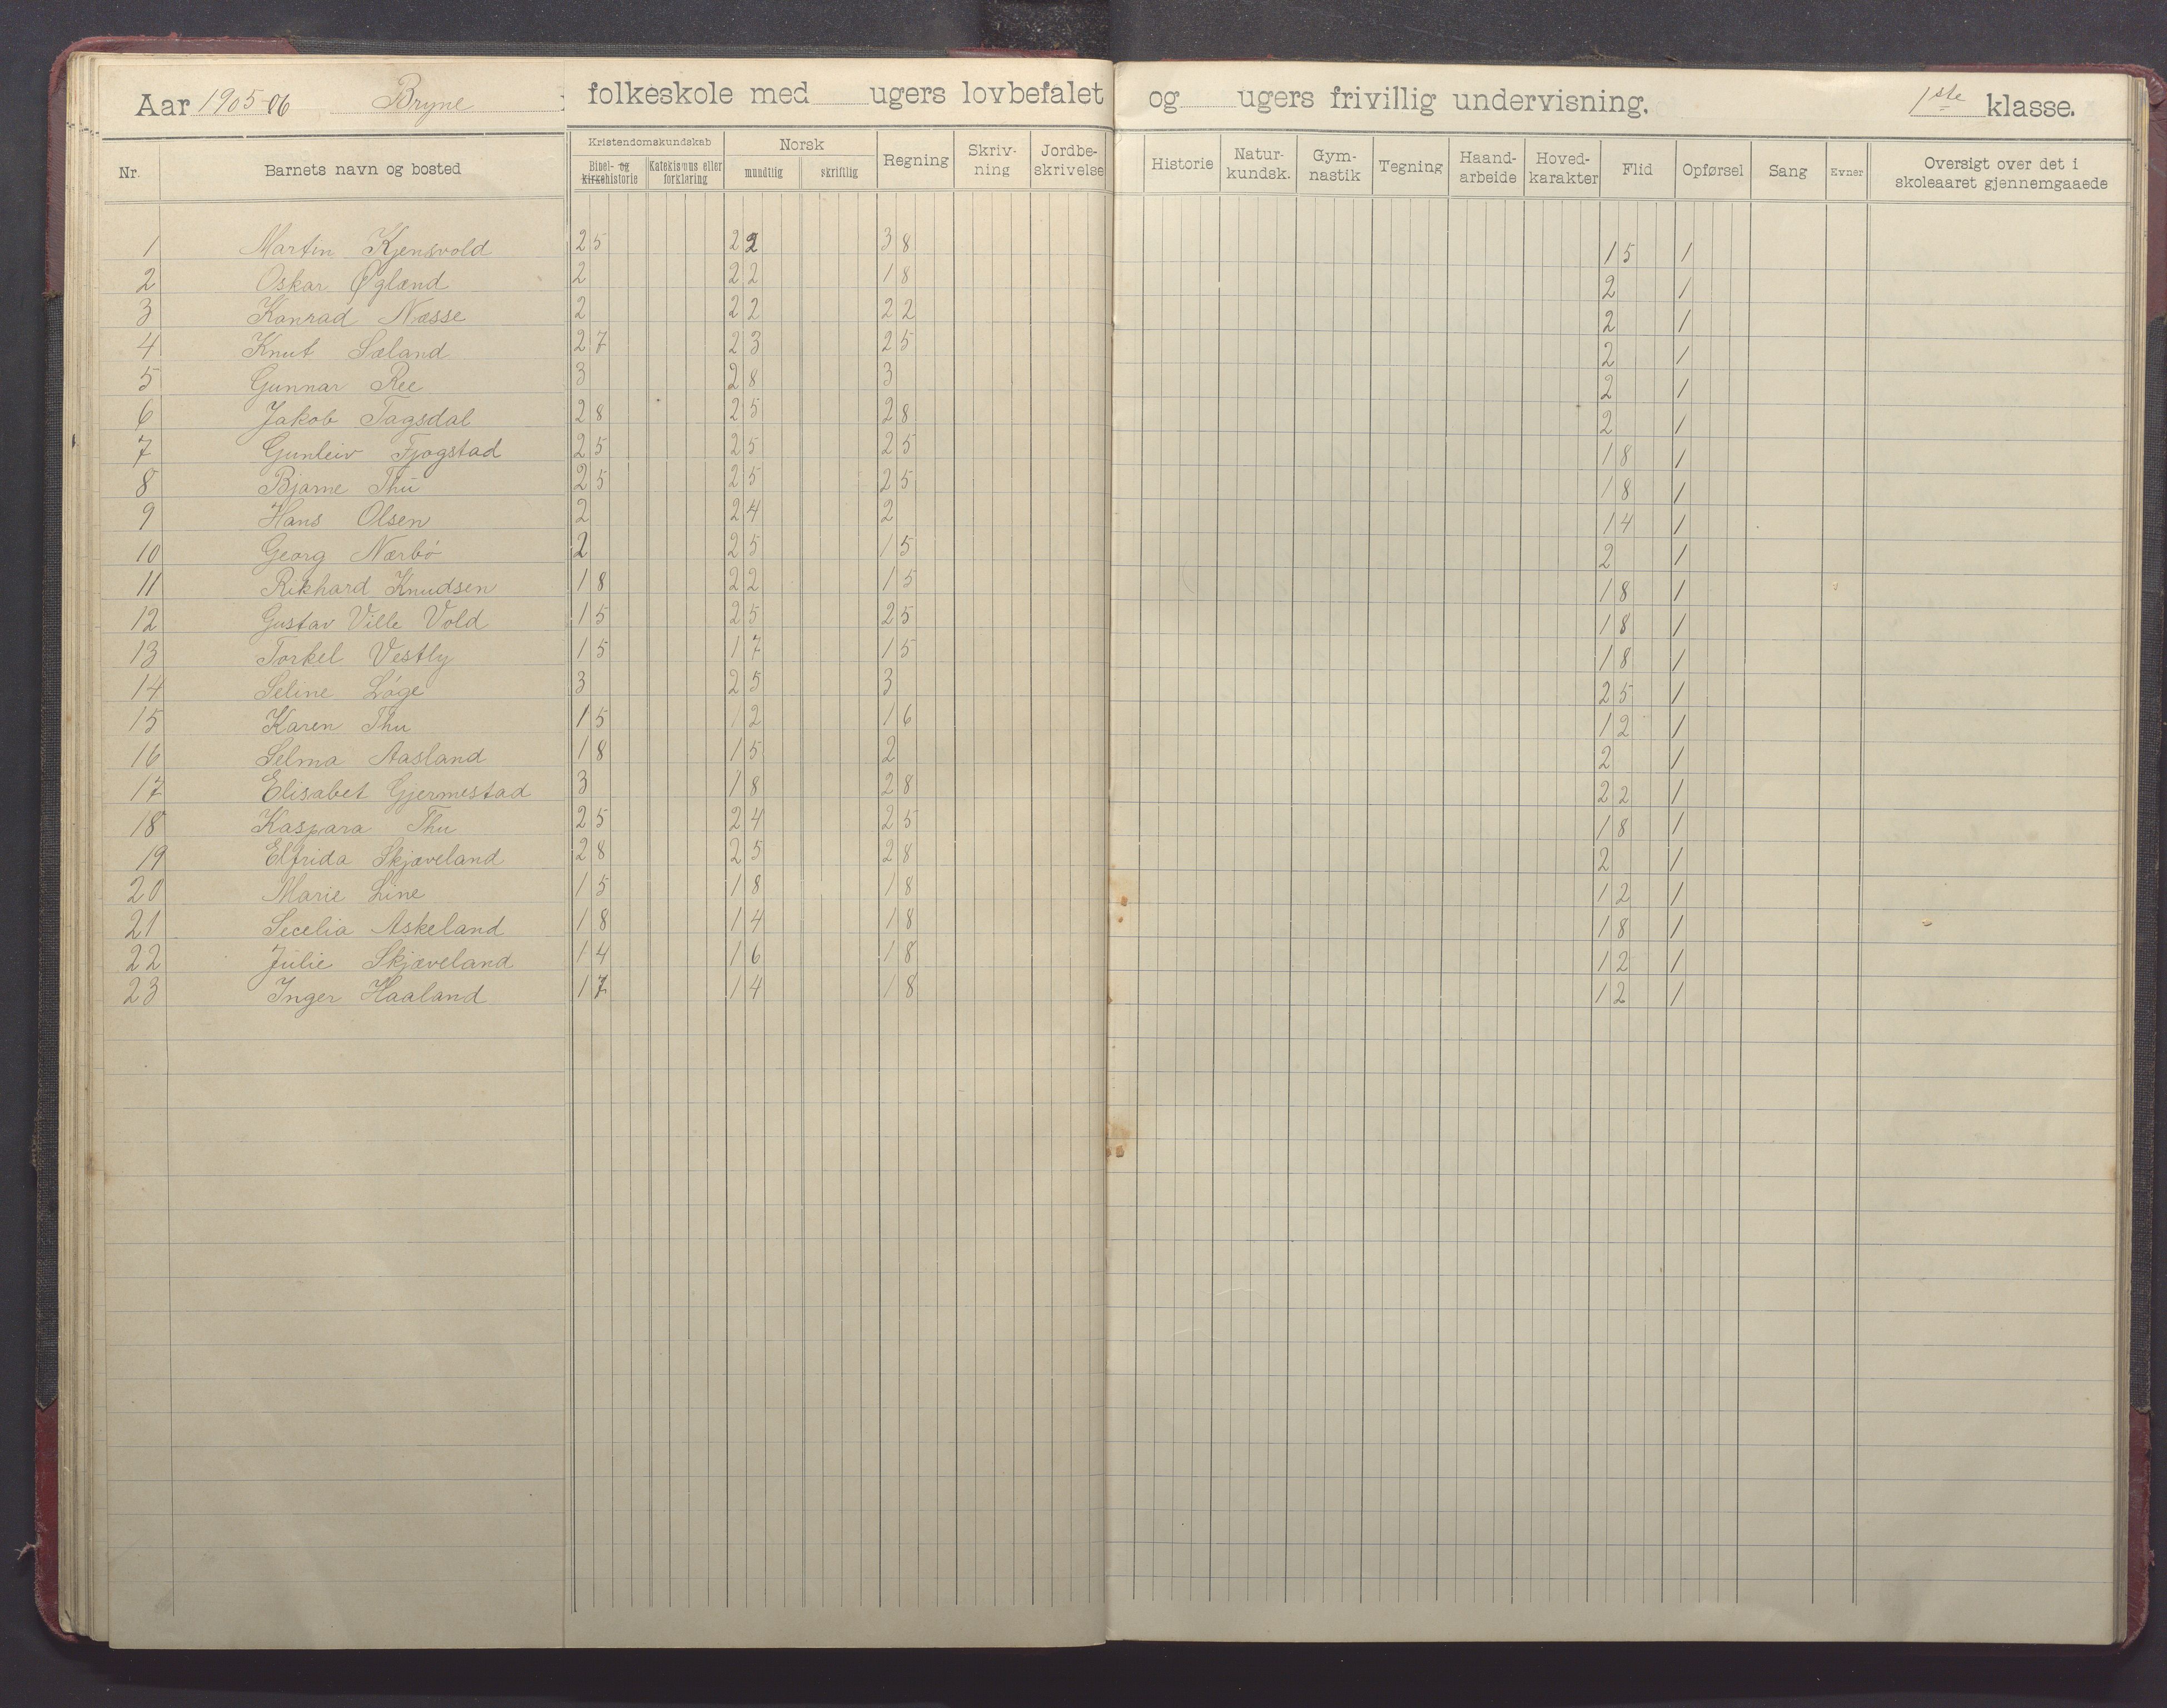 Aar 1905-06 Bryne folkeskole med ugers lovbefalet og ugers frivillig undervisning. 1ste klasse.
Nr. Barnets navn og bosted Kristendomskundskab Bibel- og kirkehistorie Katekismus eller forklaring Norsk mundtlig skriftlig Regning Skriv-ning Jordbe-skrivelse Historie Natur-kundsk. Gym-nastik Tegning Haand-arbeide Hoved-karakter Flid Opførsel Sang Evner Oversigt over det i skoleaaret gjennemgaaede
1 Martin Kjensvold 25 22 38 15 1
2 Oskar Øglænd 2 22 18 2 1
3 Konrad Næsse 2 22 22 2 1
4 Knut Sæland 27 23 25 2 1
5 Gunnar Ree 3 28 3 2 1
6 Jakob Tagsdal 28 25 28 2 1
7 Gunleiv Fjogstad 25 25 25 18 1
8 Bjarne Thu 25 25 25 18 1
9 Hans Olsen 2 24 2 14 1
10 Georg Nærbö 2 25 15 2 1
11 Rikhard Knudsen 18 22 15 18 1
12 Gustav Ville Vold 15 25 25 18 1
13 Torkel Vestly 15 17 15 18 1
14 Seline Löge 3 25 3 25 1
15 Karen Thu 15 12 16 12 1
16 Selma Aasland 18 15 2 2 1
17 Elisabet Gjermestad 3 18 28 22 1
18 Kaspara Thu 25 24 25 18 1
19 Elfrida Skjæveland 28 25 28 2 1
20 Marie Line 15 18 18 12 1
21 Secelia Askeland 18 14 18 18 1
22 Julie Skjæveland 14 16 18 12 1
23 Inger Haaland 17 14 18 12 1